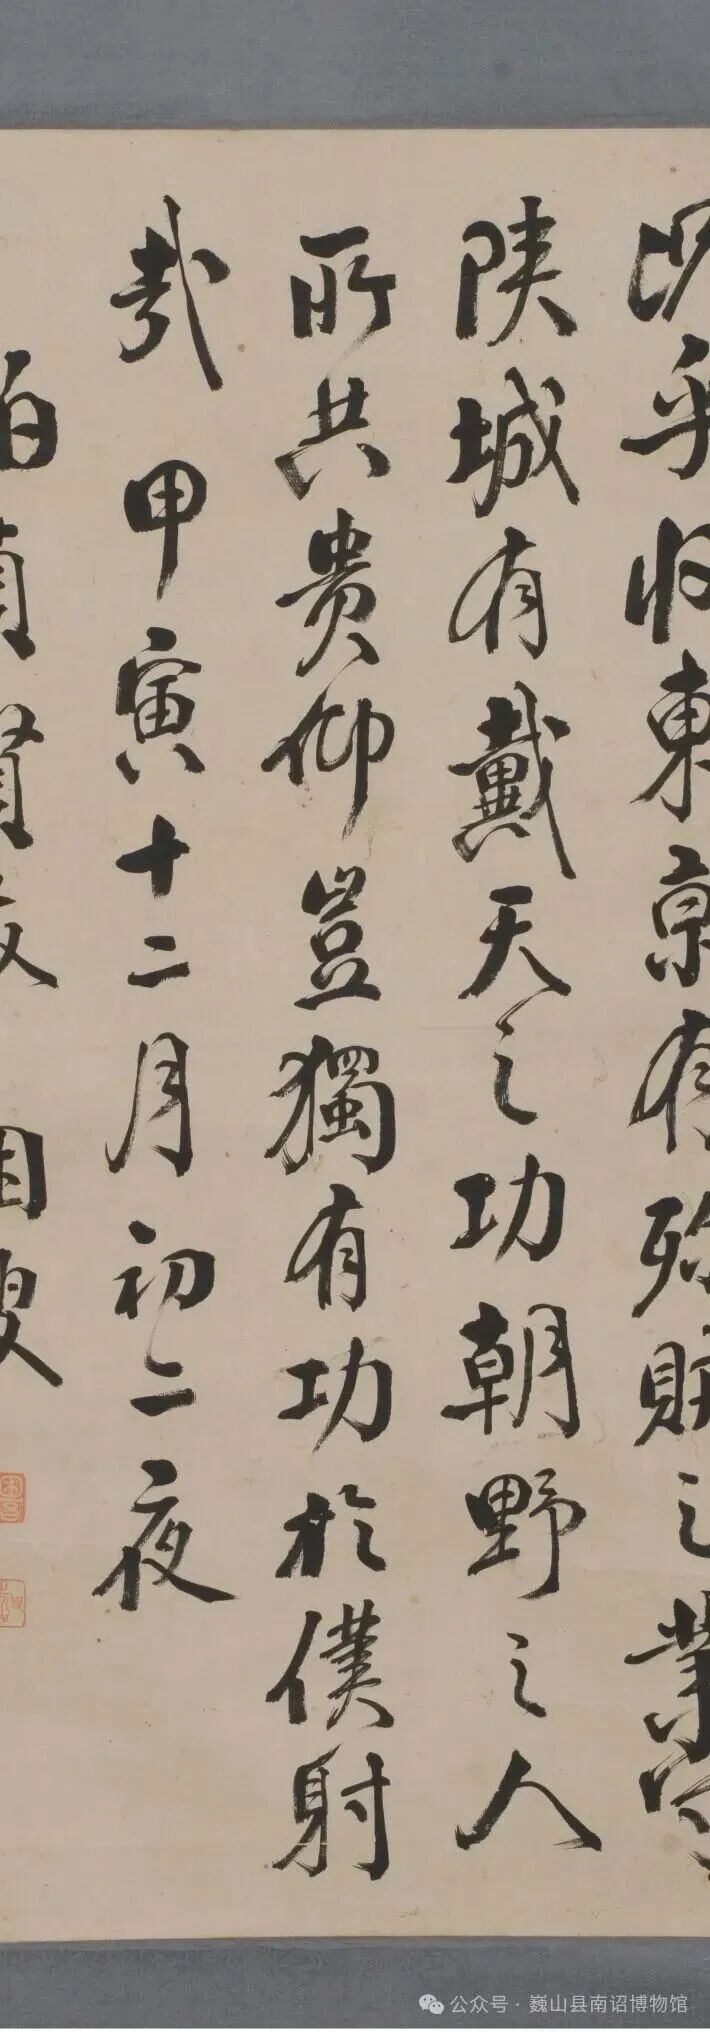 况乎收東京有殄賊之業守
陝城有戴天之功朝野之人
所共貴仰豈獨有功於僕射
哉 甲寅十二月初二夜
伯 賢友 叟
公众号 · 巍山县南诏博物馆